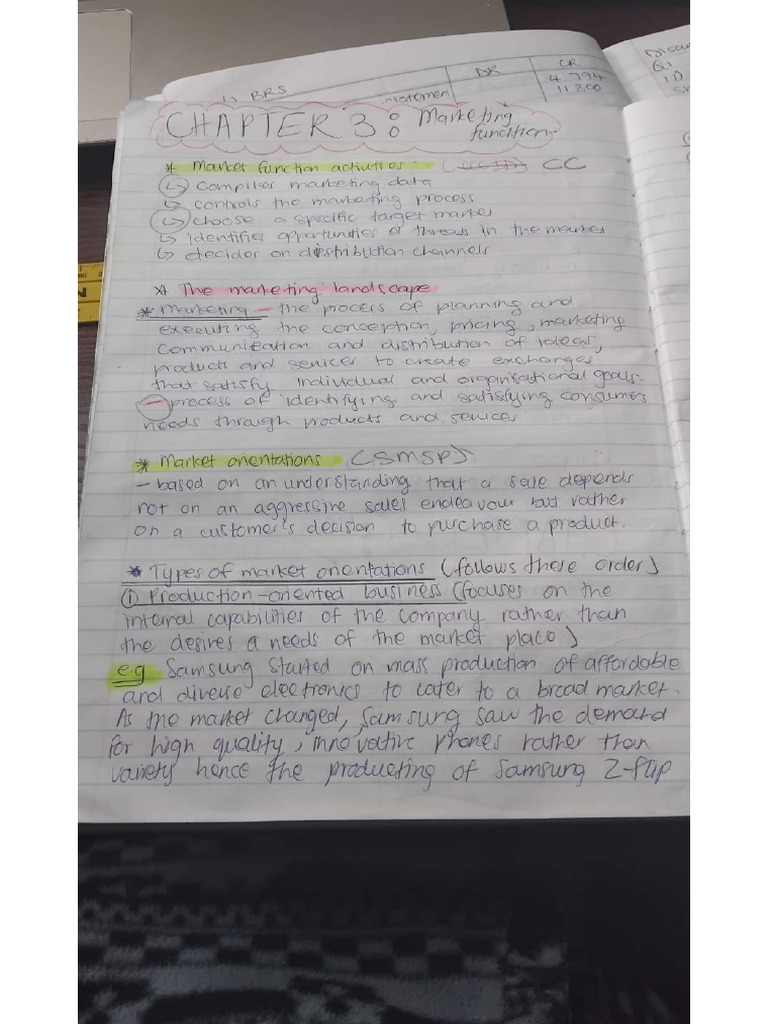 DR
CR
1) BRS
statement
4 794
11 300
Discu
Q1
1D
CHAPTER 3: Marketing
function.
* Market function activities: CC
↳ compiles marketing data
↳ controls the marketing process
↳ choose a specific target market
↳ identifies opportunities & threats in the market
↳ decides on distribution channels
* The marketing landscape
* Marketing - the process of planning and
executing the conception, pricing, marketing
communication and distribution of ideas,
products and services to create exchanges
that satisfy individual and organisational goals.
- process of identifying and satisfying consumers
needs through products and services
* Market orientations (SMSP)
- based on an understanding that a sale depends
not on an aggressive sales endeavour but rather
on a customer's decision to purchase a product.
* Types of market orientations (follows these order)
① Production-oriented business (focuses on the
internal capabilities of the company rather than
the desires & needs of the market place)
e.g Samsung started on mass production of affordable
and diverse electronics to cater to a broad market.
As the market changed, Samsung saw the demand
for high quality, innovative phones rather than
variety hence the producting of Samsung Z-flip